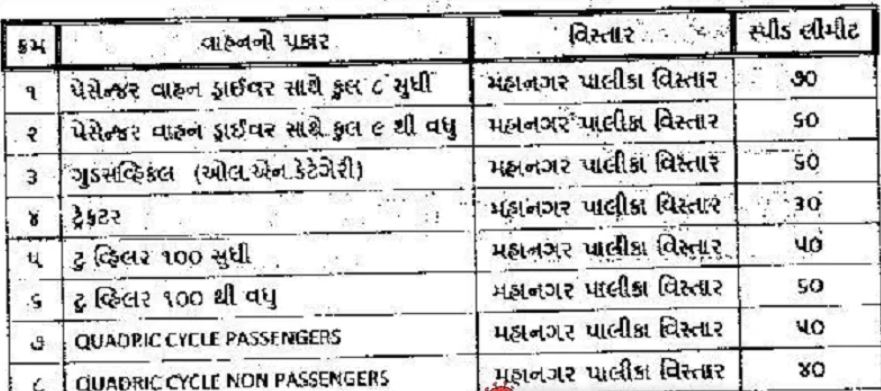 ક્રમ વાહનનો પ્રકાર વિસ્તાર સ્પીડ લીમીટ
૧ પેસેન્જર વાહન ડ્રાઈવર સાથે કુલ ૮ સુધી મહાનગર પાલીકા વિસ્તાર ૭૦
૨ પેસેન્જર વાહન ડ્રાઈવર સાથે કુલ ૯ થી વધુ મહાનગર પાલીકા વિસ્તાર ૬૦
૩ ગુડસવ્હિકલ (ઓલ.એન.કેટેગેરી) મહાનગર પાલીકા વિસ્તાર ૬૦
૪ ટ્રેકટર મહાનગર પાલીકા વિસ્તાર ૩૦
૫ ટુ વ્હિલર ૧૦૦ સુધી મહાનગર પાલીકા વિસ્તાર ૫૦
૬ ટુ વ્હિલર ૧૦૦ થી વધુ મહાનગર પાલીકા વિસ્તાર ૬૦
૭ QUADRIC CYCLE PASSENGERS મહાનગર પાલીકા વિસ્તાર ૫૦
૮ QUADRIC CYCLE NON PASSENGERS મહાનગર પાલીકા વિસ્તાર ૪૦